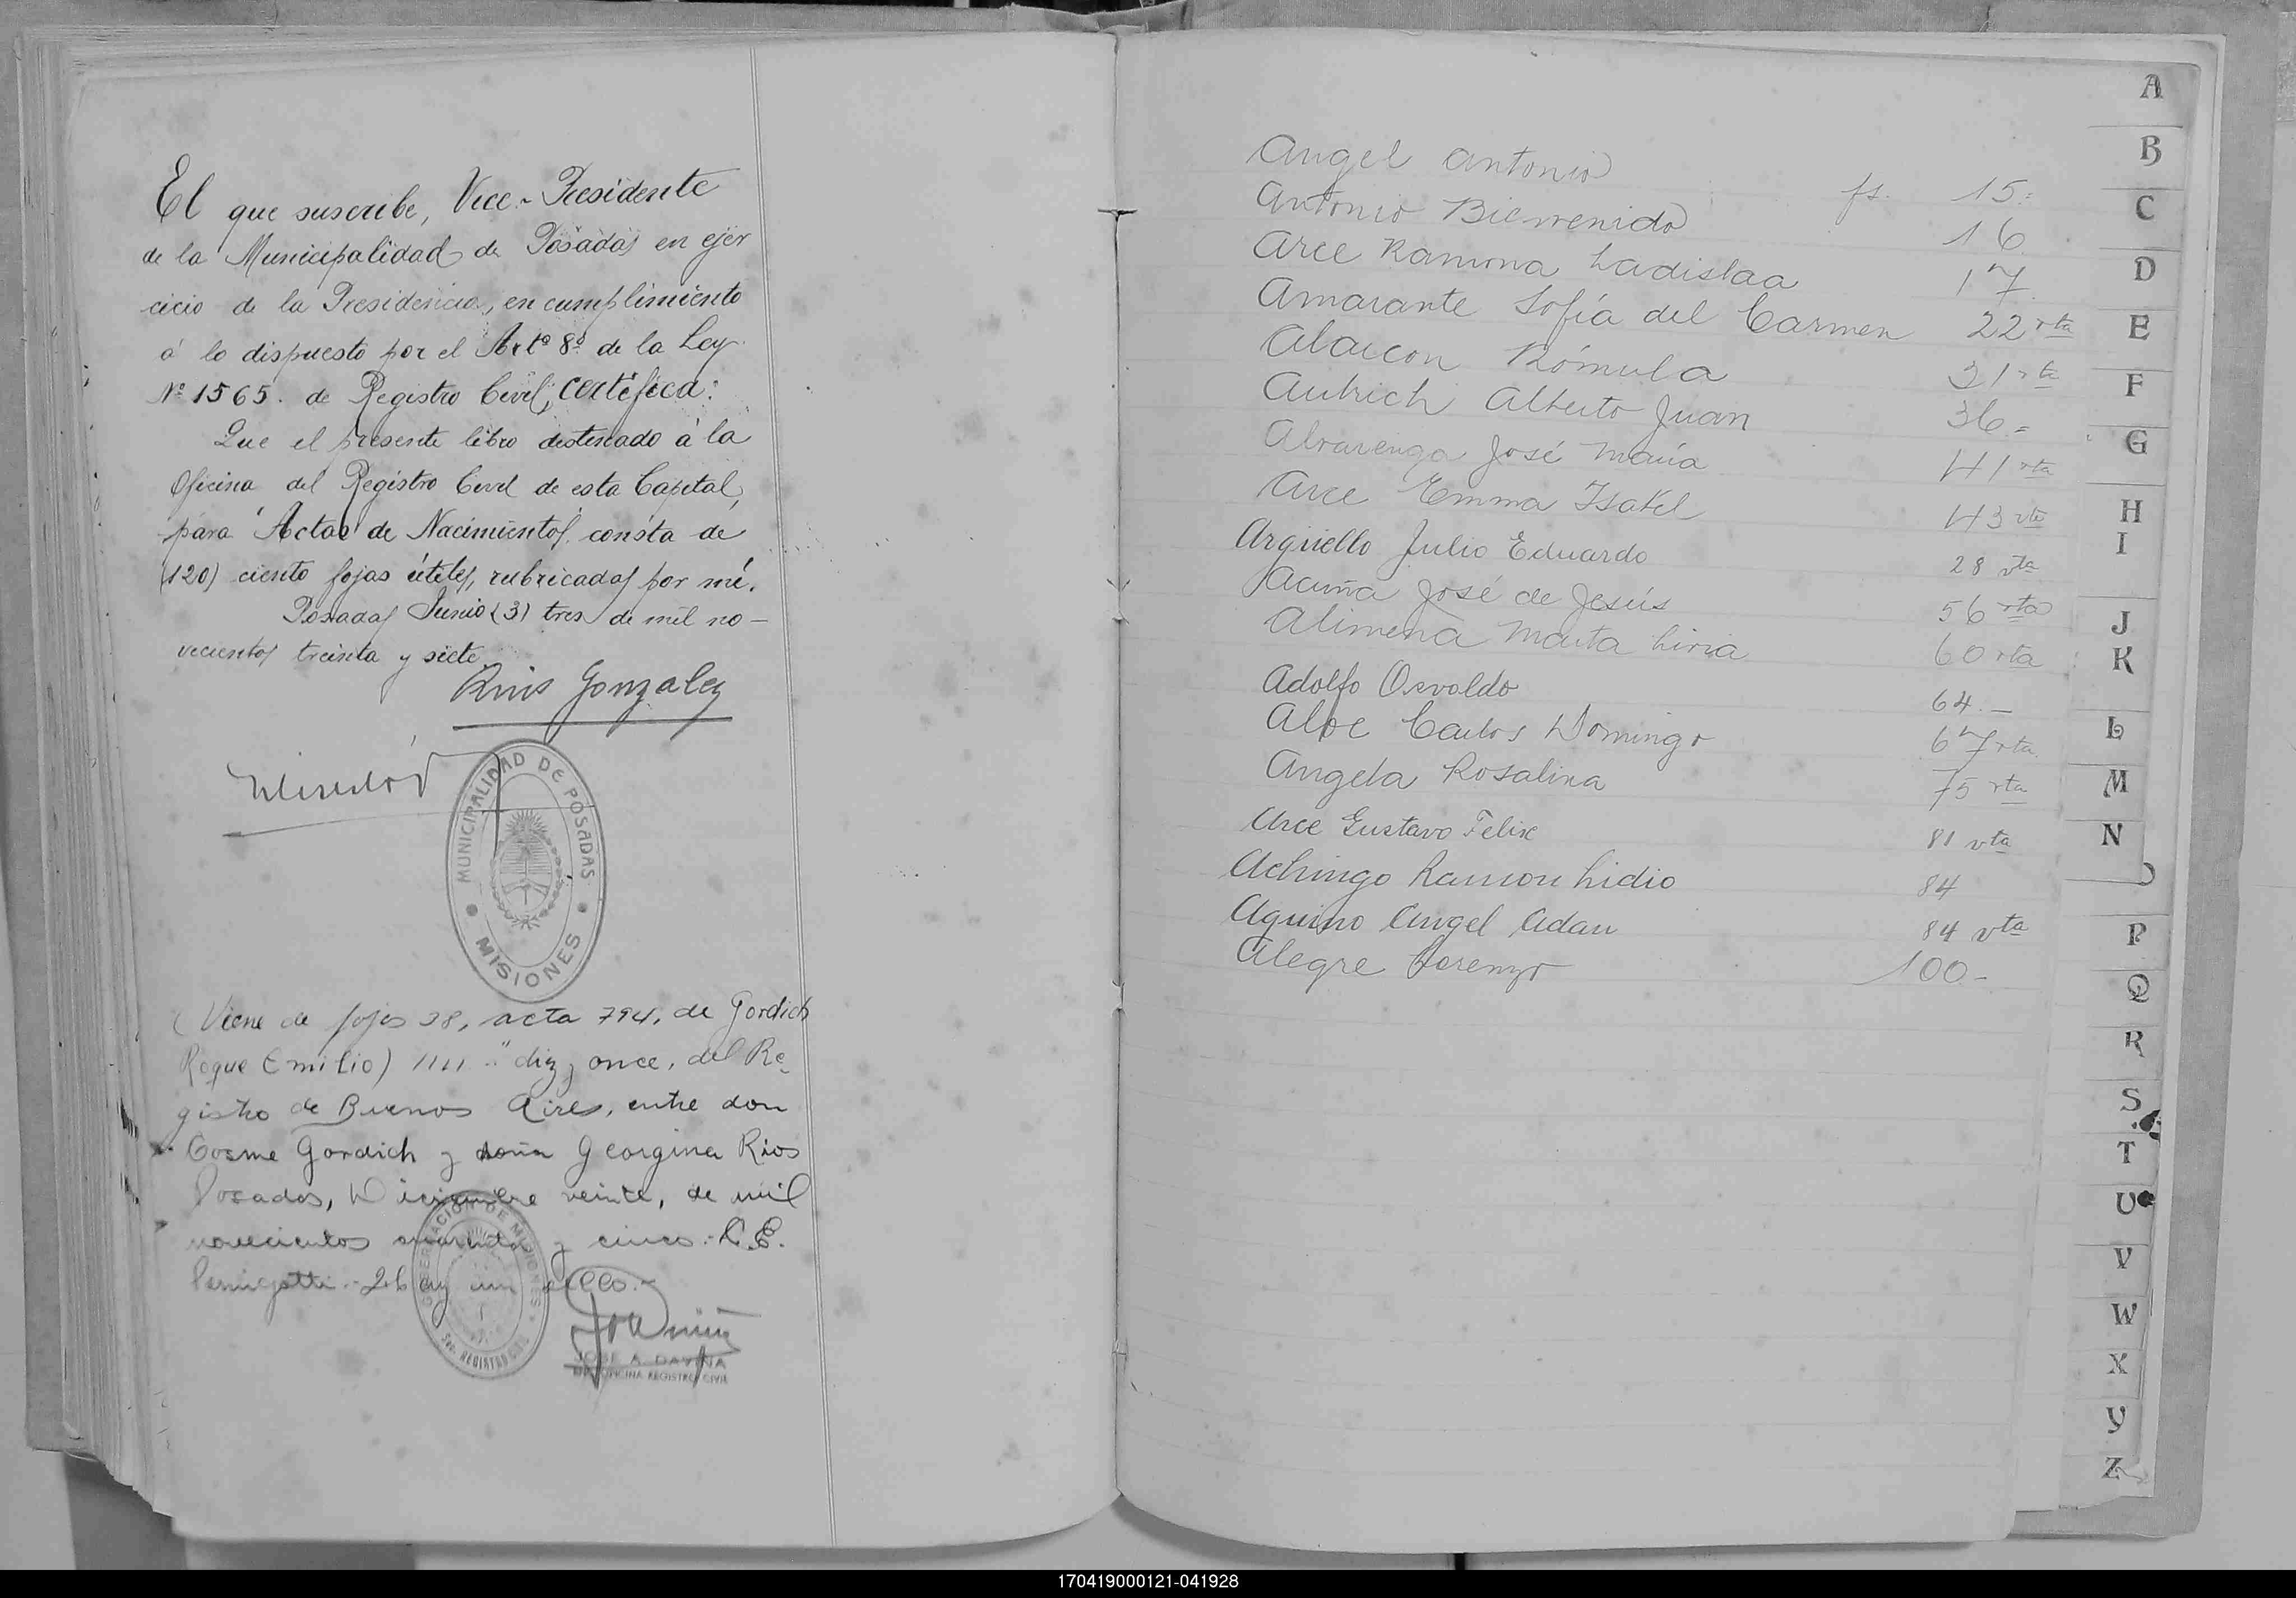 El que suscribe, Vice-Presidente
de la Municipalidad de Posadas en ejer
cicio de la Presidencia, en cumplimiento
á lo dispuesto por el Artº 8º de la Ley
Nº 1565. de Registro Civil, certifica:
Que el presente libro destinado á la
Oficina del Registro Civil de esta Capital,
para Actas de Nacimientos consta de
(120) ciento fojas útiles, rubricadas por mi.
Posadas Junio (3) tres de mil no-
vecientos treinta y siete
Gonzalez
MUNICIPALIDAD DE POSADAS
MISIONES
(Viene de fojas 38, acta 794, de Gordich
Roque Emilio) 1111 - " diez y once, del Re-
gistro de Buenos Aires, entre don
Cosme Gordich y doña Georgina Rios
Posadas, Diciembre veinte, de mil
novecientos cuarenta y cinco.- C.E.
GOBERNACION DE MISIONES
JOSE A. DAVIÑA
OFICINA REGISTRO CIVIL
Angel Antonio fs. 15.=
Antonio Bienvenido 16
Arce Ramona Ladislaa 17
Amarante Sofía del Carmen 22 vta
Alarcon Rómula 31 vta
Autrich Alberto Juan 36.=
Alvarenga José María 41 vta
Arce Emma Isabel 43 vta
Argüello Julio Eduardo 28 vta
Acuña José de Jesús 56 vta
Alimena Marta Liria 60 vta
Adolfo Osvaldo 64.-
Aloe Carlos Domingo 67 vta
Angela Rosalina 75 vta
Arce Gustavo Felix 81 vta
Achingo Ramon Lidio 84
Aquino Angel Adan 84 vta
Alegre Lorenzo 100-
A
B
C
D
E
F
G
H
I
J
K
L
M
N
P
Q
R
S
T
U
V
W
X
Y
Z
170419000121-041928